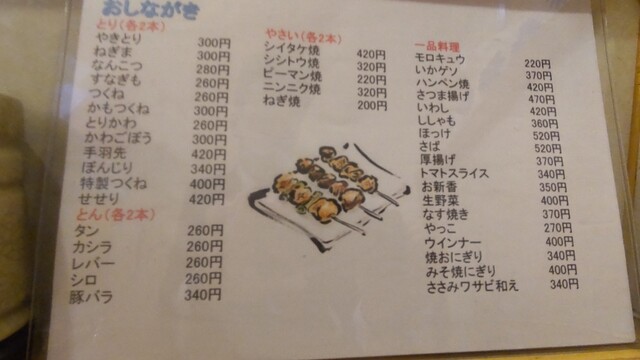 おしながき
とり(各2本)
やきとり 300円
ねぎま 300円
なんこつ 280円
すなぎも 260円
つくね 260円
かもつくね 300円
とりかわ 260円
かわごぼう 300円
手羽先 420円
ぼんじり 340円
特製つくね 400円
せせり 420円
とん(各2本)
タン 260円
カシラ 260円
レバー 260円
シロ 260円
豚バラ 340円
やさい(各2本)
シイタケ焼 420円
シシトウ焼 320円
ピーマン焼 220円
ニンニク焼 320円
ねぎ焼 200円
一品料理
モロキュウ 220円
いかゲソ 370円
ハンペン焼 420円
さつま揚げ 470円
いわし 420円
ししゃも 360円
ほっけ 520円
さば 520円
厚揚げ 370円
トマトスライス 340円
お新香 350円
生野菜 400円
なす焼き 370円
やっこ 270円
ウインナー 400円
焼おにぎり 340円
みそ焼にぎり 400円
ささみワサビ和え 340円